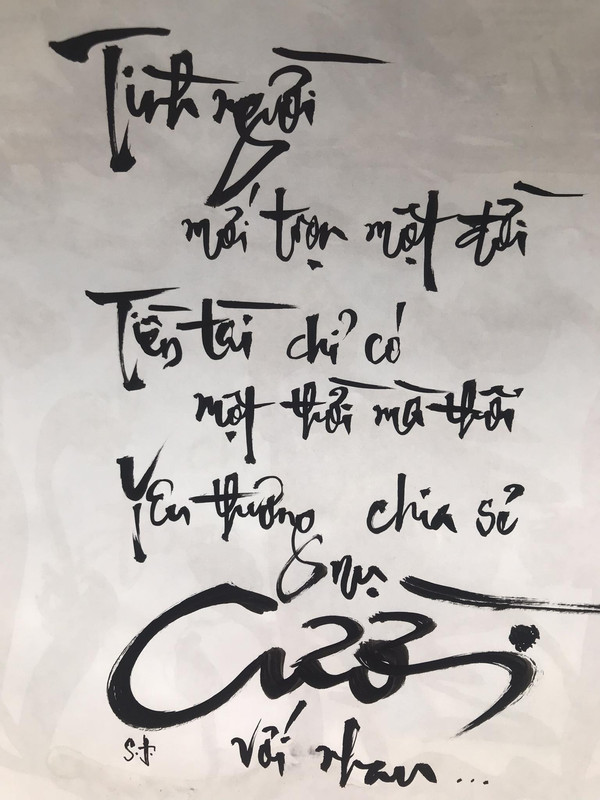 Tình người
mới trọn một đời
Tiền tài chỉ có
một thời mà thôi
Yêu thương chia sẻ
nụ
Cười
S.J. với nhau...